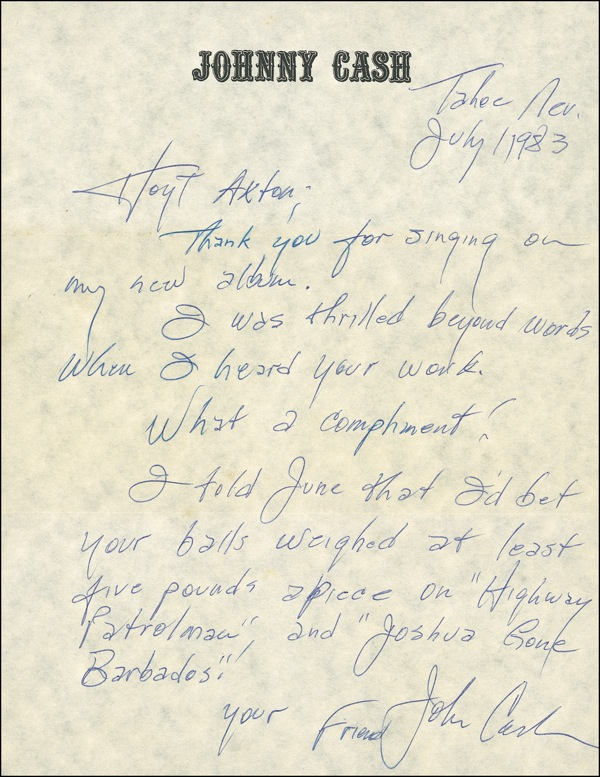 JOHNNY CASH
Tahoe Nev.
July 1, 1983
Hoyt Axton;
Thank you for singing on
my new album.
I was thrilled beyond words
When I heard your work.
What a compliment!
I told June that I'd bet
your balls weighed at least
five pounds apiece on "Highway
Patrolman", and "Joshua Gone
Barbados".
your Friend John Cash